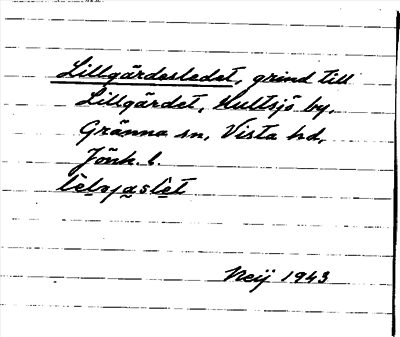 Lillgärdesledet, grind till
Lillgärdet, Hultsjö by,
Gränna sn, Vista hd,
Jönh. l.
Neij 1943